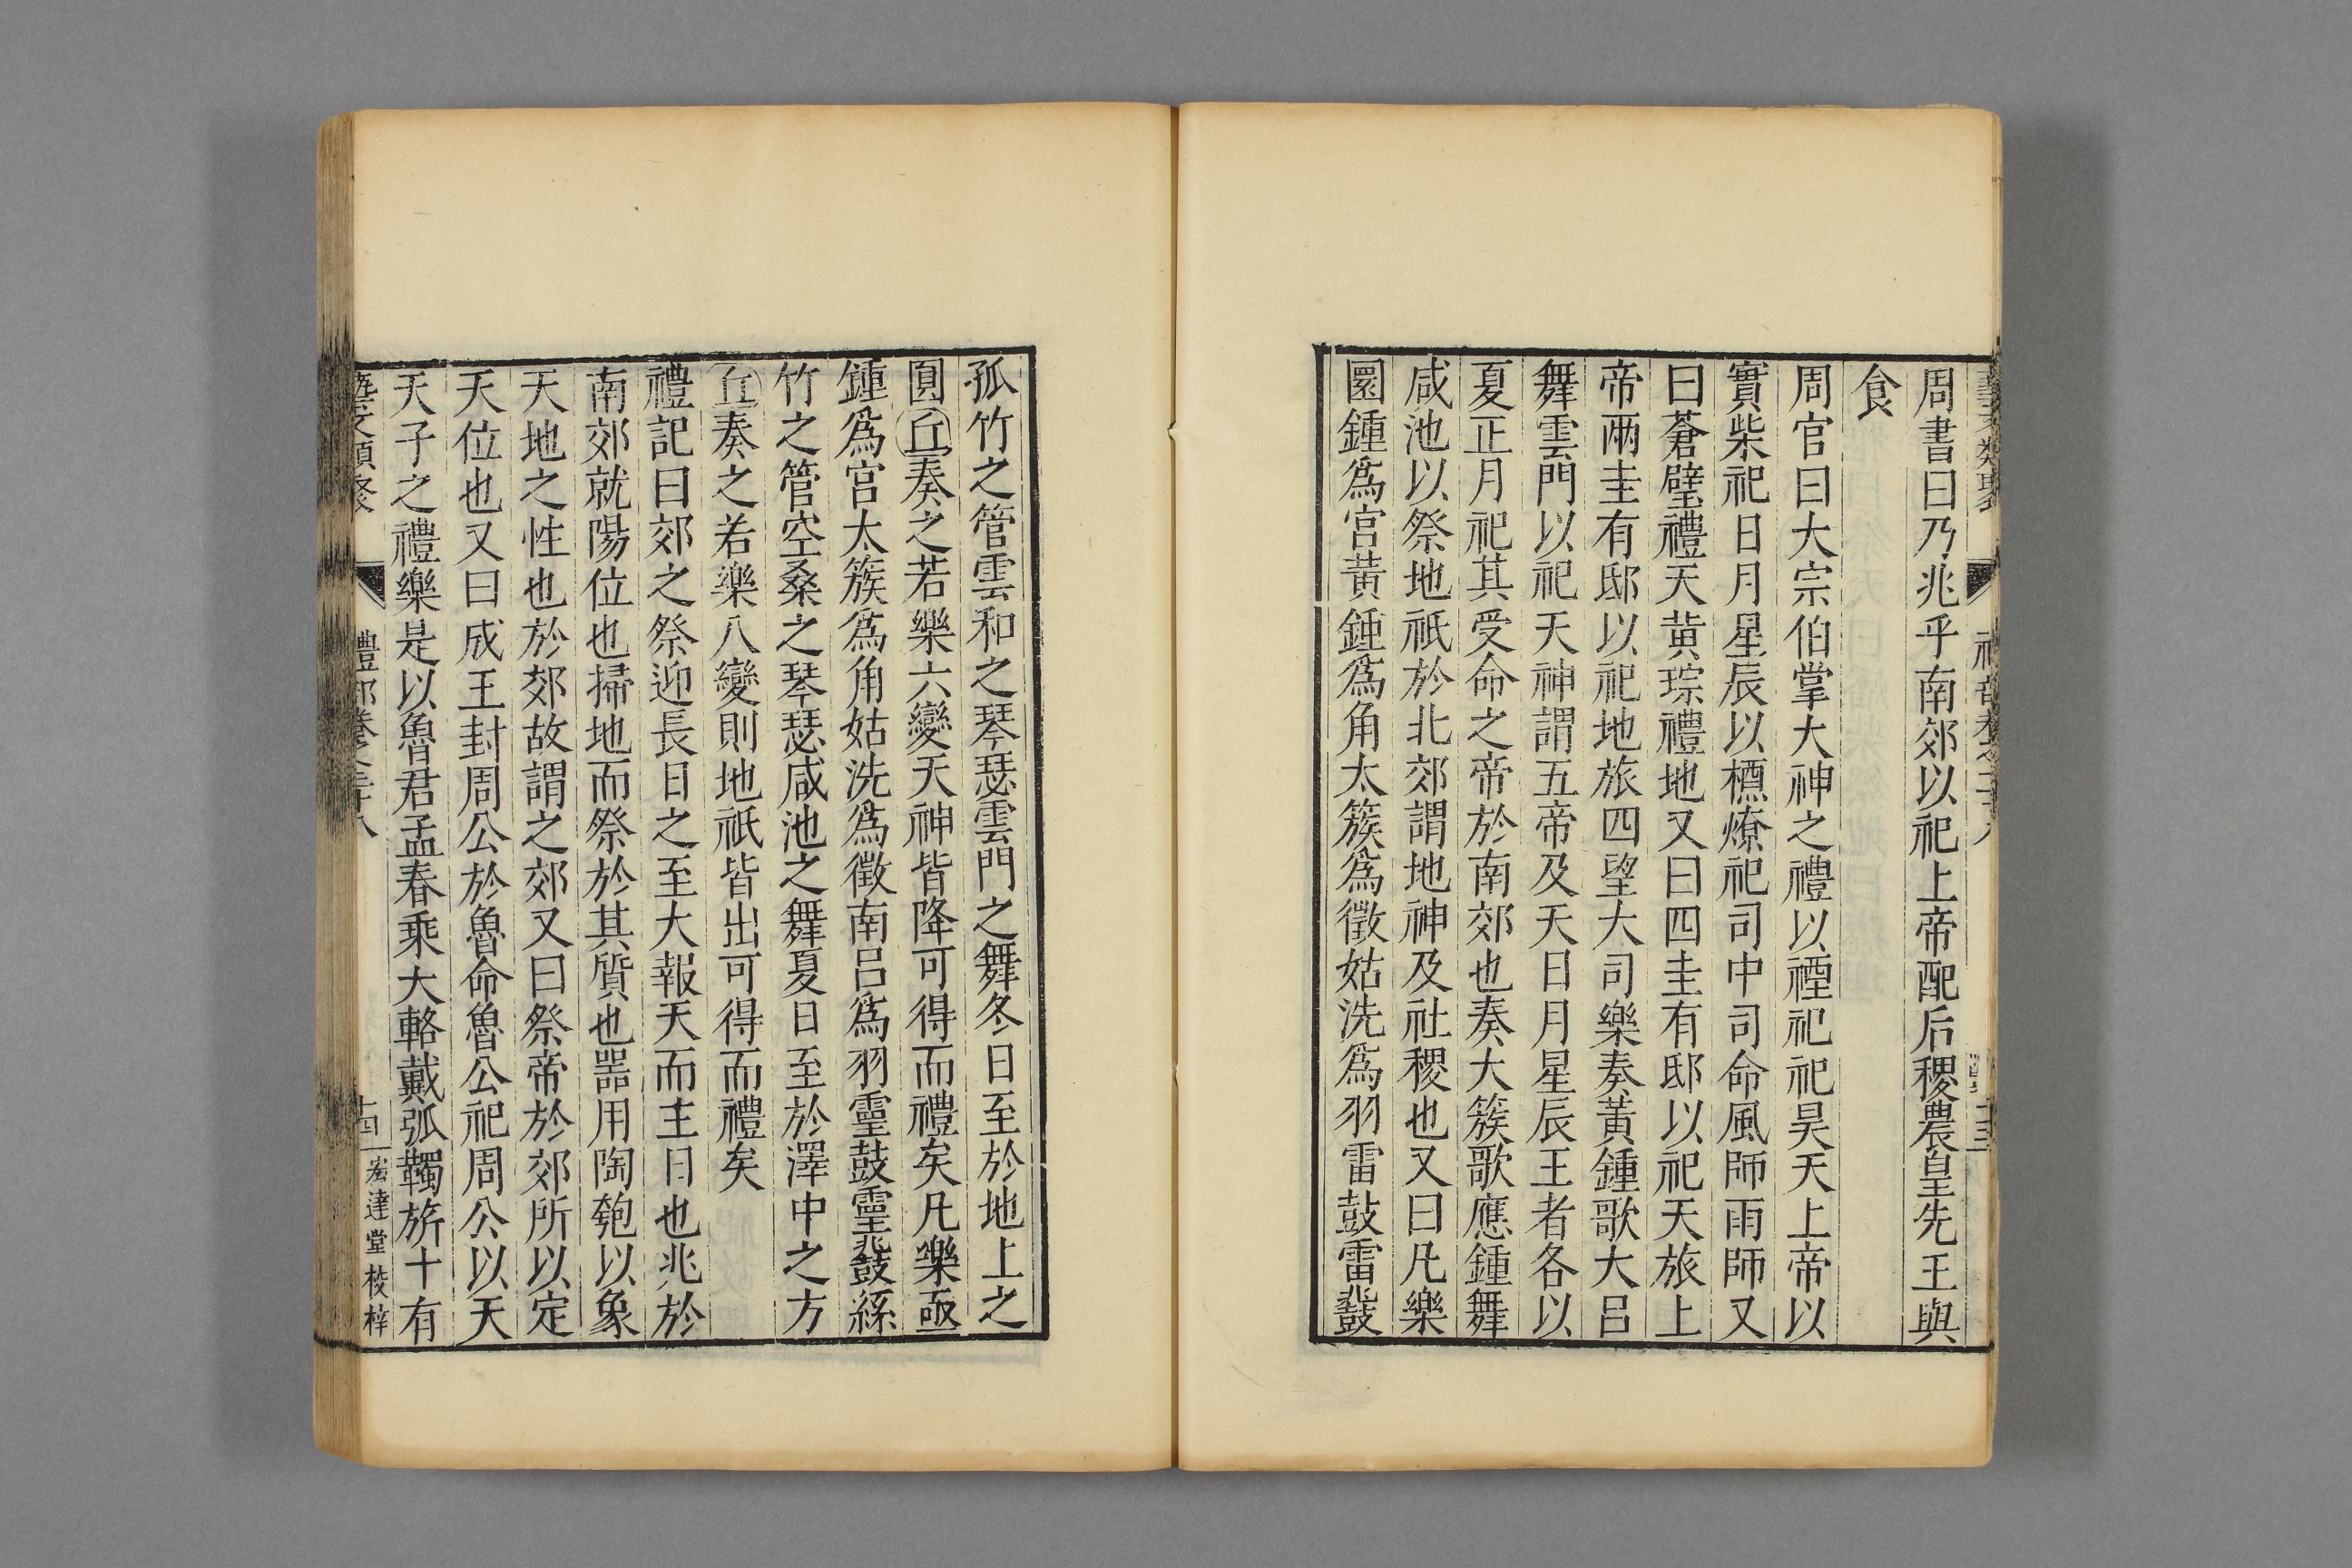 周書曰乃兆乎南郊以祀上帝配后稷農皇先王與
食
周官曰大宗伯掌大神之禮以禋祀祀昊天上帝以
實柴祀日月星辰以槱燎祀司中司命風師雨師又
曰蒼璧禮天黃琮禮地又曰四圭有邸以祀天旅上
帝兩圭有邸以祀地旅四望大司樂奏黃鍾歌大呂
舞雲門以祀天神謂五帝及天日月星辰王者各以
夏正月祀其受命之帝於南郊也奏大簇歌應鍾舞
咸池以祭地祇於北郊謂地神及社稷也又曰凡樂
圜鍾爲宮黃鍾爲角太簇爲徵姑洗爲羽雷鼓雷鼗
孤竹之管雲和之琴瑟雲門之舞冬日至於地上之
圓丘奏之若樂六變天神皆降可得而禮矣凡樂函
鍾爲宮太簇爲角姑洗爲徵南呂爲羽靈鼓靈鼗絲
竹之管空桑之琴瑟咸池之舞夏日至於澤中之方
丘奏之若樂八變則地祇皆出可得而禮矣
禮記曰郊之祭迎長日之至大報天而主日也兆於
南郊就陽位也掃地而祭於其質也器用陶匏以象
天地之性也於郊故謂之郊又曰祭帝於郊所以定
天位也又曰成王封周公於魯命魯公祀周公以天
天子之禮樂是以魯君孟春乘大輅戴弧韣旂十有
藝文類聚 禮部卷之三十八 十四 宏達堂校梓